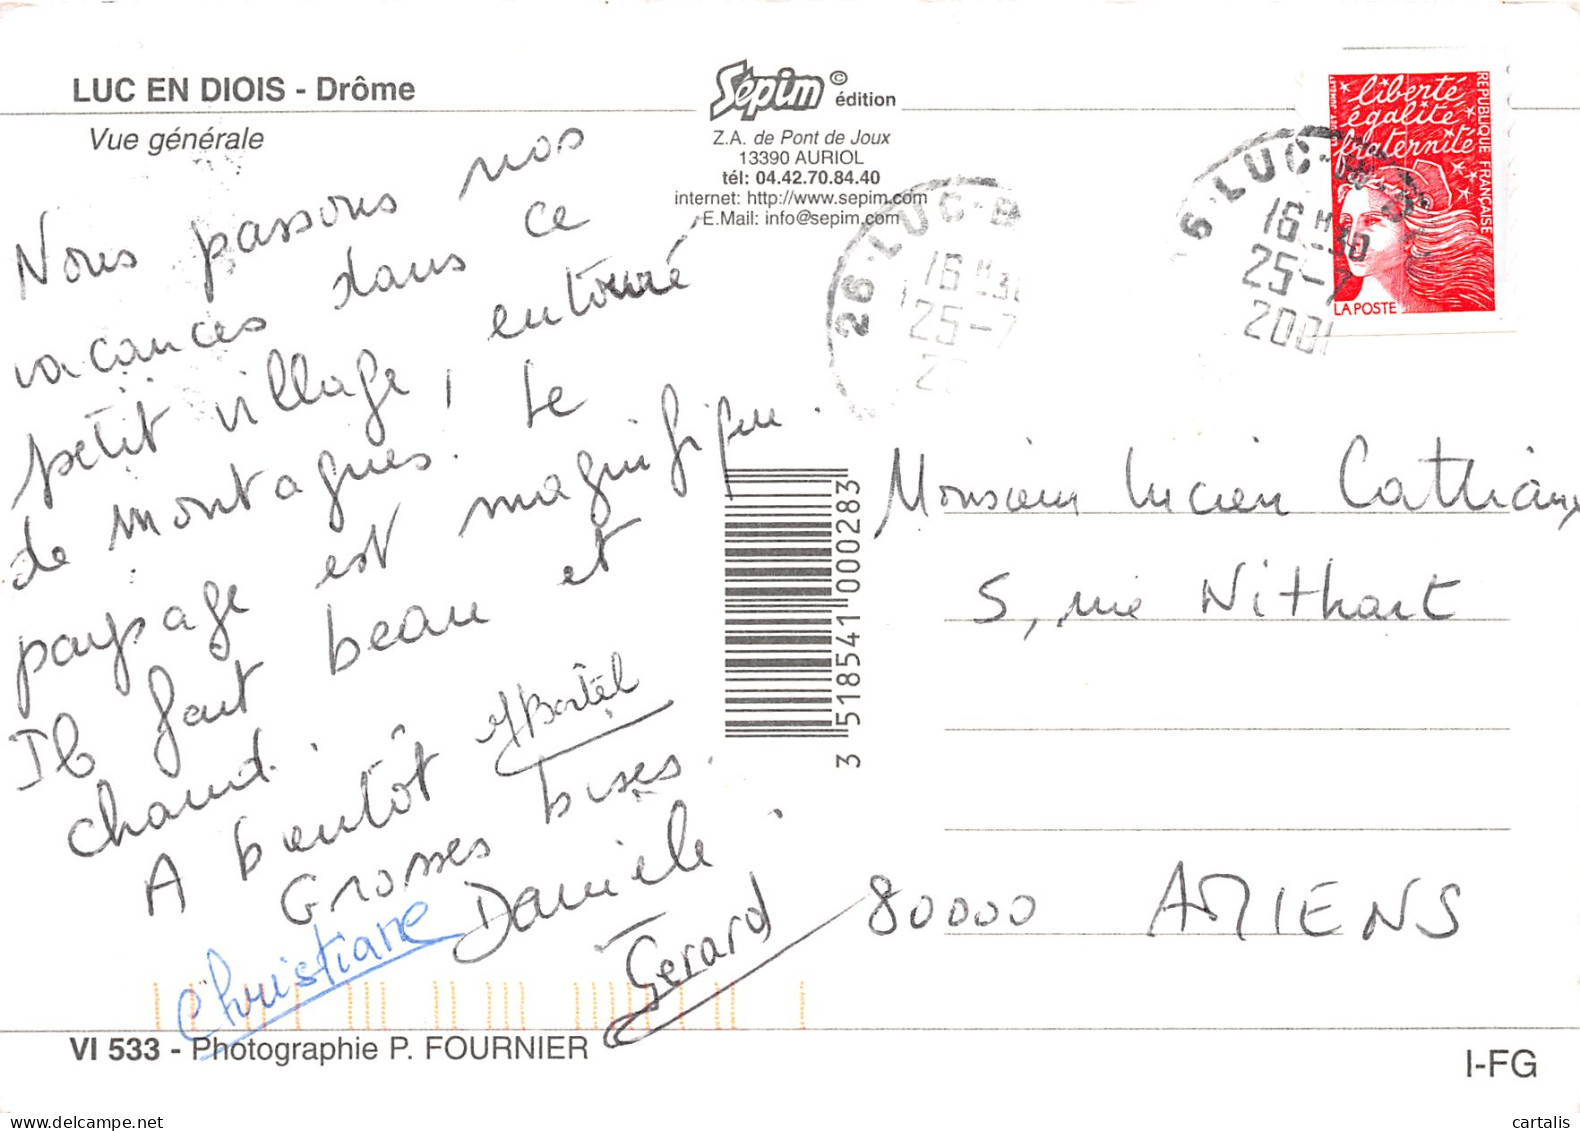 LUC EN DIOIS - Drôme
Vue générale
Sépim © édition
Z.A. de Pont de Joux
13390 AURIOL
tél: 04.42.70.84.40
internet: http://www.sepim.com
E.Mail: info@sepim.com
Nous passons nos
vacances dans ce
petit village, entouré
de montagnes. Le
paysage est magnifique.
Il fait beau et
chaud.
A bientôt
Grosses bises.
Christiane Danièle
Gérard
3 518541 000283
26 LUC-
16 H 30
25-7
26 LUC-
16 H 30
25-7
2001
liberté
égalité
fraternité
REPUBLIQUE FRANÇAISE
LA POSTE
Monsieur Lucien Cathiaux
5, rue Nithart
80000 AMIENS
VI 533 - Photographie P. FOURNIER
I-FG
cartalis